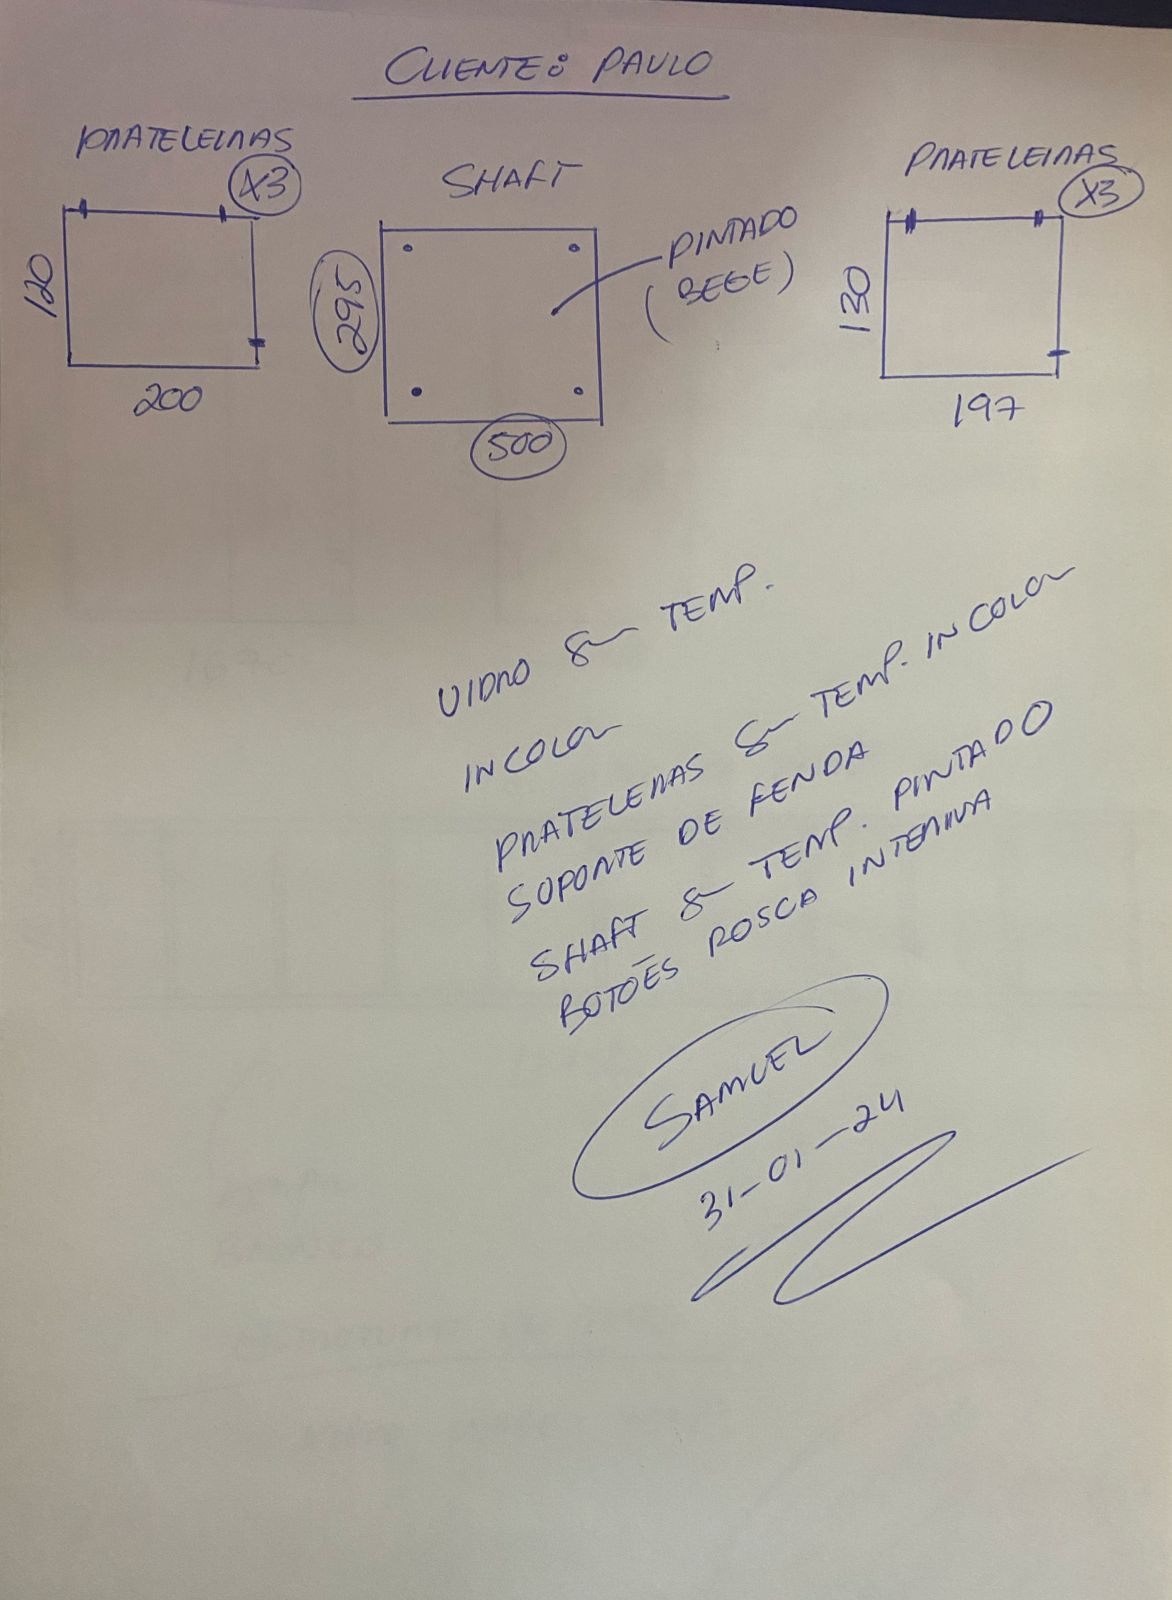 CLIENTE: PAULO
PRATELEIRAS
X3
120
200
SHAFT
295
500
PINTADO
(BEGE)
PRATELEIRAS
X3
130
197
VIDRO 8m TEMP.
INCOLOR
PRATELEIRAS 8m TEMP. INCOLOR
SUPORTE DE FENDA
SHAFT 8m TEMP. PINTADO
BOTÕES ROSCA INTERNA
SAMUEL
31-01-24